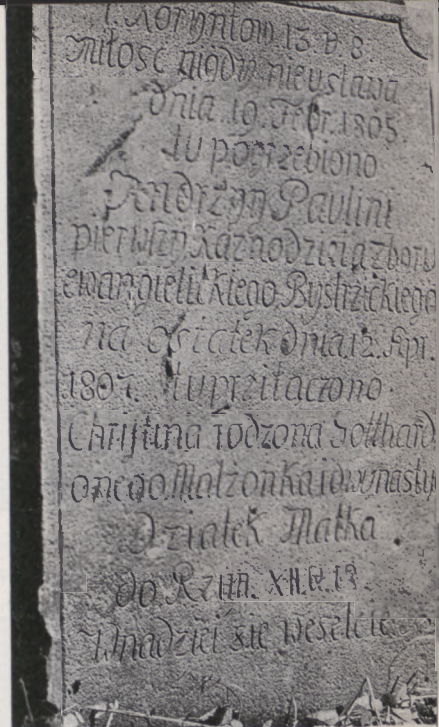 1. Koryntom 13 v 8.
miłosc nigdy nieustawa
dnia 19. Febr. 1805.
tu pogrzebiono
Andrzyn Paulini
pierwszy Kaznodzieia zboru
ewangielickiego Bystrzickiego
na ostatek dnia 12. Apr.
1807. tu przitaczono
Christina rodzona Sotthard
onego Malzonka i dwunastu
Dziatek Matka.
do Rzim. XII. v. 12
W nadziei sie weselcie